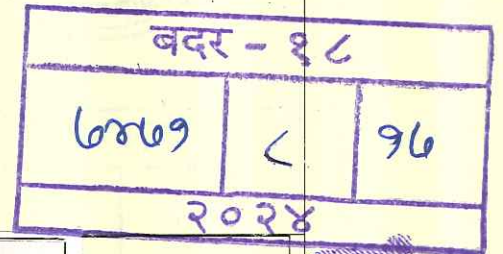 बदर - १८
७४७१ ८ १७
२०२४